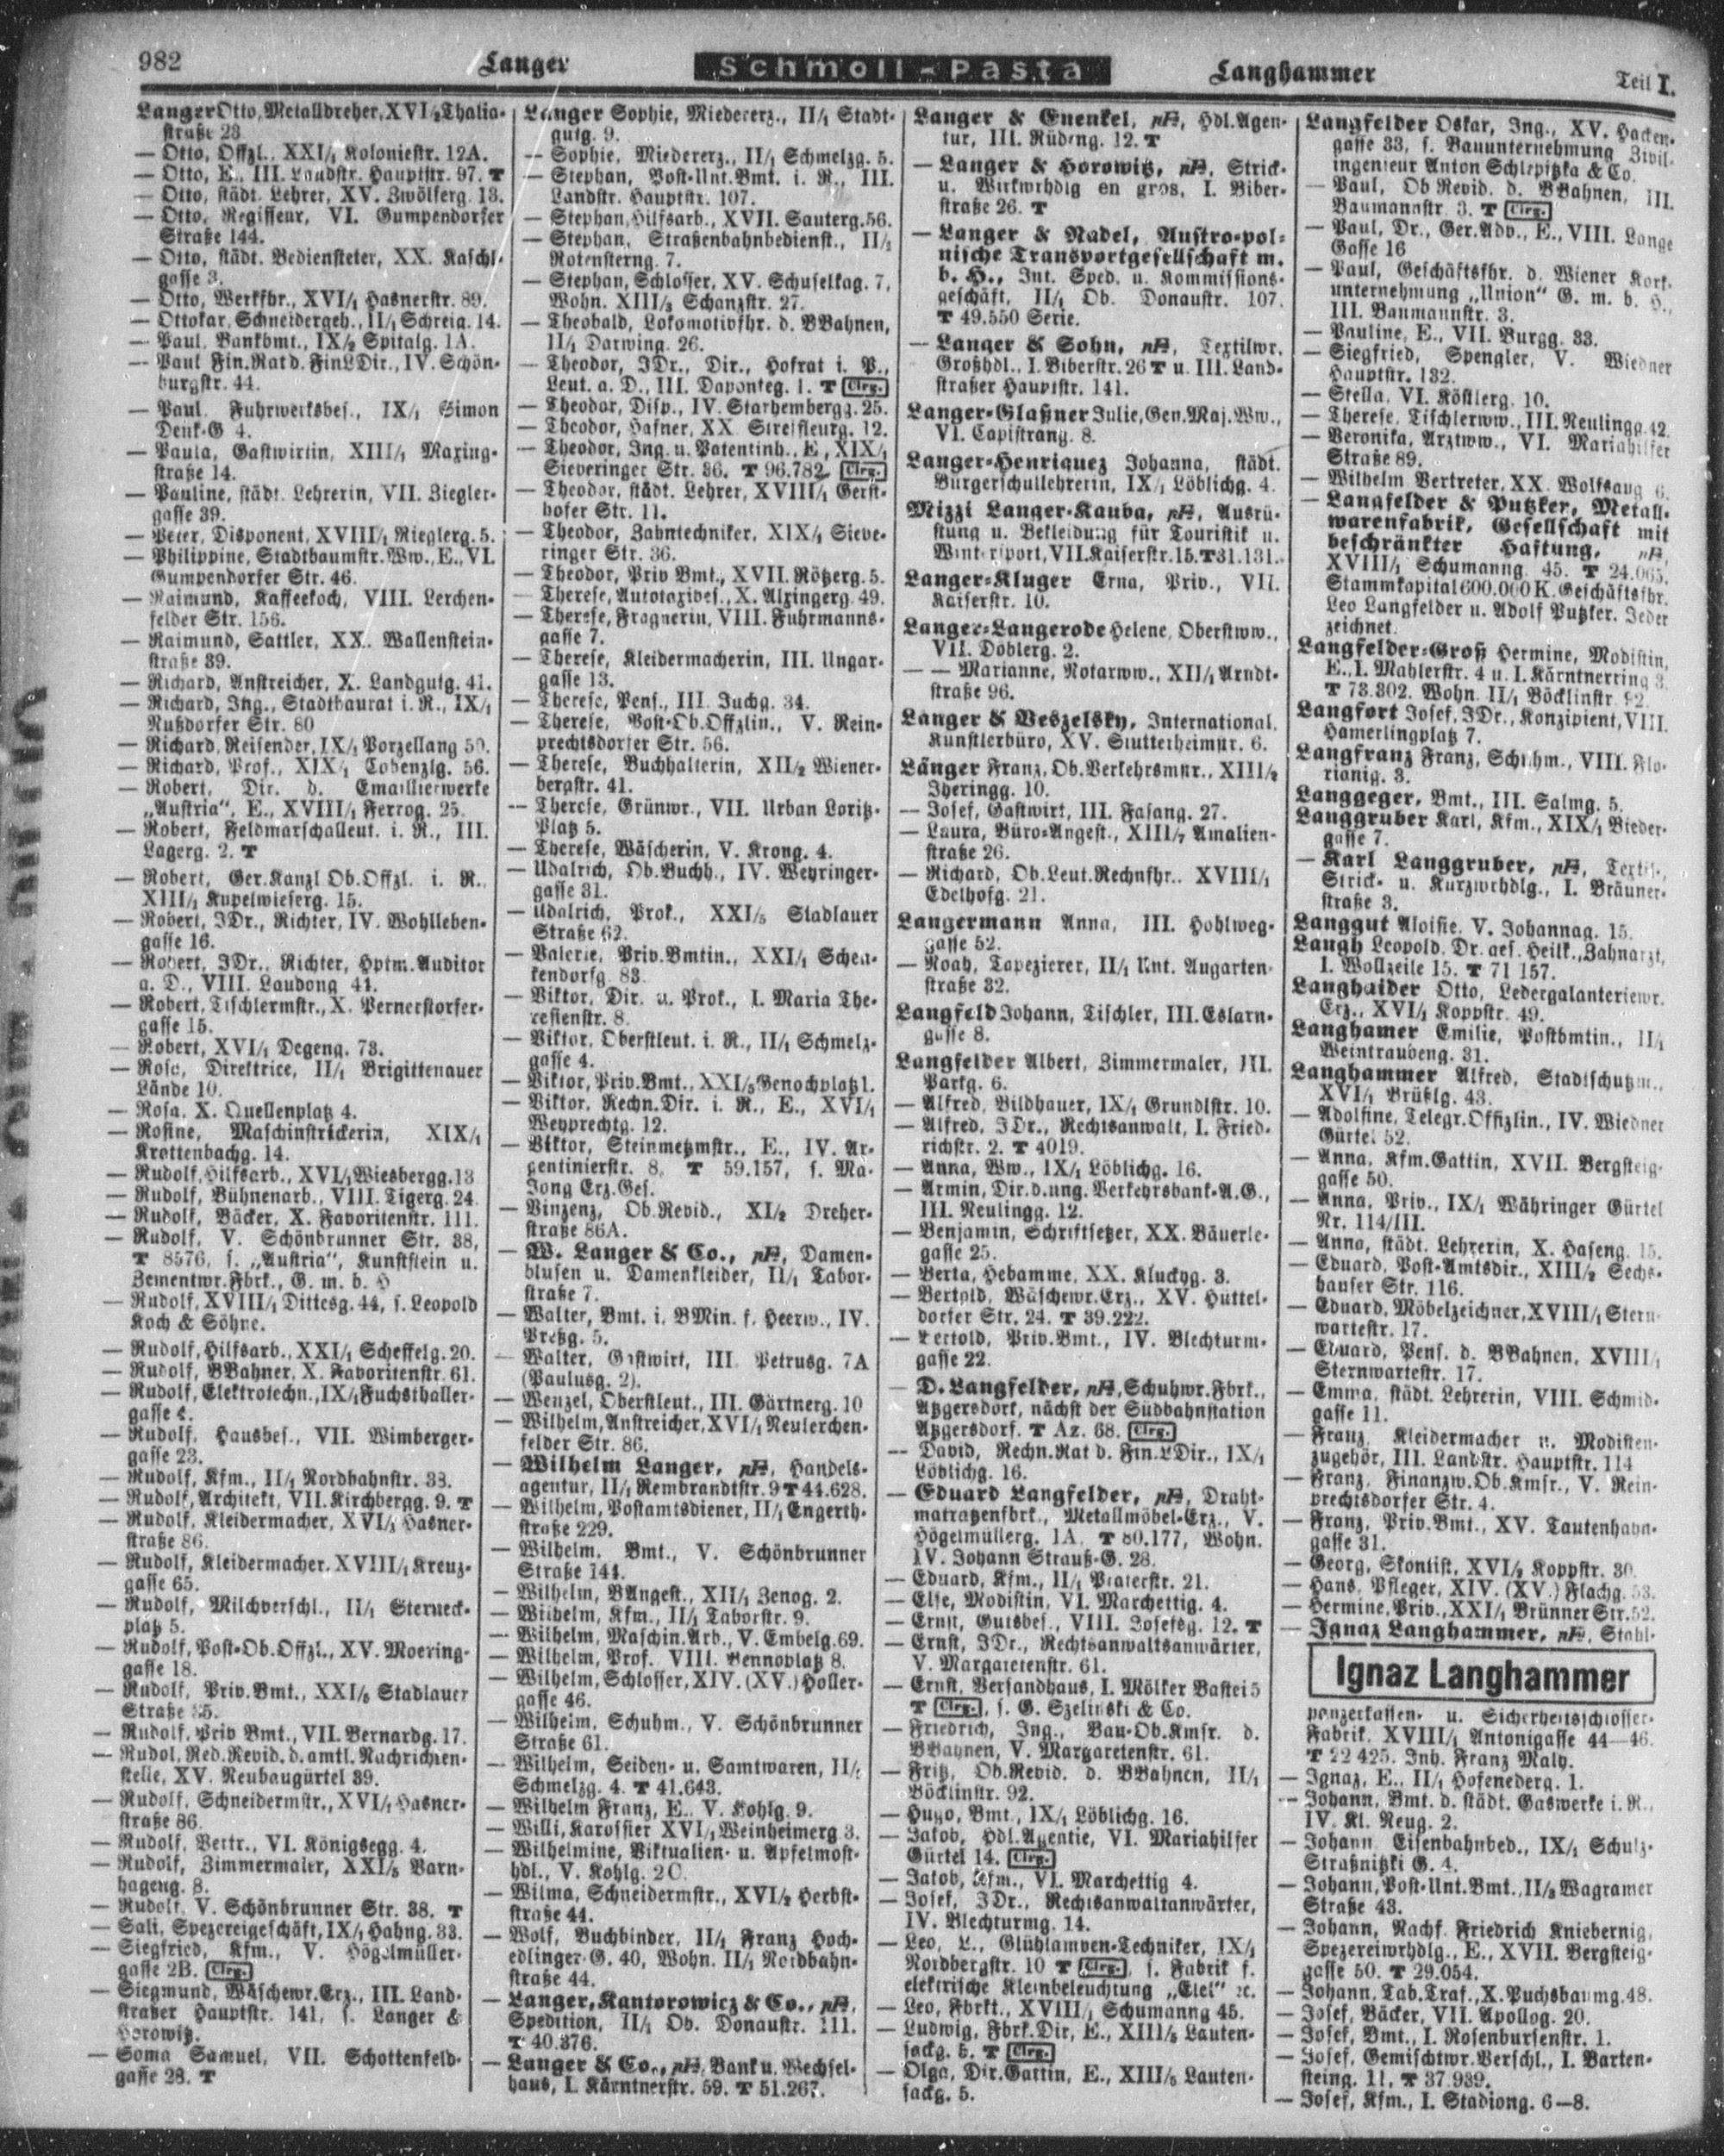 982
Langer
Schmoll-Pasta
Langhammer
Teil I.
Langer Otto, Metalldreher, XVI/2 Thalia-
straße 23
— Otto, Offzl., XXI/1 Koloniestr. 12A.
— Otto, E., III. Landstr. Hauptstr. 97. T
— Otto, städt. Lehrer, XV. Zwölferg. 13.
— Otto, Regisseur, VI. Gumpendorfer
Straße 144.
— Otto, städt. Bediensteter, XX. Raschl-
gasse 3.
— Otto, Werkfhr., XVI/1 Hasnerstr. 89.
— Ottokar, Schneidergeh., II/1 Schreig. 14.
— Paul, Bankbmt., IX/2 Spitalg. 1A.
— Paul Fin.Rat d. FinLDir., IV. Schön-
burgstr. 44.
— Paul, Fuhrwerksbes., IX/1 Simon
Denk-G 4.
— Paula, Gastwirtin, XIII/1 Maxing-
straße 14.
— Pauline, städt. Lehrerin, VII. Ziegler-
gasse 39.
— Peter, Disponent, XVIII/1 Rieglerg. 5.
— Philippine, Stadtbaumstr. Ww., E., VI.
Gumpendorfer Str. 46.
— Raimund, Kaffeekoch, VIII. Lerchen-
felder Str. 156.
— Raimund, Sattler, XX. Wallenstein-
straße 39.
— Richard, Anstreicher, X. Landgutg. 41.
— Richard, Ing., Stadtbaurat i. R., IX/1
Nußdorfer Str. 80
— Richard, Reisender, IX/1 Porzellang 50.
— Richard, Prof., XIX/1 Cobenzlg. 56.
— Robert, Dir. d. Emaillierwerke
„Austria“, E., XVIII/1 Ferrog. 25.
— Robert, Feldmarschalleut. i. R., III.
Lagerg. 2. T
— Robert, Ger.Kanzl Ob.Offzl. i. R.,
XIII/1 Kupelwieserg. 15.
— Robert, JDr., Richter, IV. Wohlleben-
gasse 16.
— Robert, JDr., Richter, Hptm.Auditor
a. D., VIII. Laudong 41.
— Robert, Tischlermstr., X. Pernerstorfer-
gasse 15.
— Robert, XVI/1 Degeng. 73.
— Rosa, Direktrice, II/1 Brigittenauer
Lände 10.
— Rosa, X. Quellenplatz 4.
— Rosine, Maschinstrickerin, XIX/1
Krottenbachg. 14.
— Rudolf, Hilfsarb., XVI/1 Wiesbergg. 13
— Rudolf, Bühnenarb., VIII. Tigerg. 24.
— Rudolf, Bäcker, X. Favoritenstr. 111.
— Rudolf, V. Schönbrunner Str. 38,
T 8576, s. „Austria“, Kunststein u.
Zementwr.Fbrk., G. m. b. H
— Rudolf, XVIII/1 Dittesg. 44, s. Leopold
Koch & Söhne.
— Rudolf, Hilfsarb., XXI/1 Scheffelg. 20.
— Rudolf, BBahner, X. Favoritenstr. 61.
— Rudolf, Elektrotechn., IX/1 Fuchsthaller-
gasse 4.
— Rudolf, Hausbes., VII. Wimberger-
gasse 23.
— Rudolf, Kfm., II/1 Nordbahnstr. 38.
— Rudolf, Architekt, VII. Kirchbergg. 9. T
— Rudolf, Kleidermacher, XVI/1 Hasner-
straße 86.
— Rudolf, Kleidermacher, XVIII/1 Kreuz-
gasse 65.
— Rudolf, Milchverschl., II/1 Sterneck-
platz 5.
— Rudolf, Post-Ob.Offzl., XV. Moering-
gasse 18.
— Rudolf, Priv.Bmt., XXI/5 Stadlauer
Straße
— Rudolf, Priv Bmt., VII. Bernardg. 17.
— Rudol, Red.Revid. d. amtl. Nachrichten-
stelle, XV. Neubaugürtel 39.
— Rudolf, Schneidermstr., XVI/1 Hasner-
straße 86.
— Rudolf, Vertr., VI. Königsegg. 4.
— Rudolf, Zimmermaler, XXI/5 Varn-
hageng. 8.
— Rudolf, V. Schönbrunner Str. 38. T
— Sali, Spezereigeschäft, IX/1 Hahng. 33.
— Siegfried, Kfm., V. Högelmüller-
gasse 2B. Clrg.
— Siegmund, Wäschewr.Erz., III. Land-
straßer Hauptstr. 141, s. Langer &
Horowitz.
— Soma Samuel, VII. Schottenfeld-
gasse 28. T
Langer Sophie, Miedererz., II/1 Stadt-
gutg. 9.
— Sophie, Miedererz., II/1 Schmelzg. 5.
— Stephan, Post-Unt.Bmt. i. R., III.
Landstr. Hauptstr. 107.
— Stephan, Hilfsarb., XVII. Sauterg. 56.
— Stephan, Straßenbahnbedienst., II/1
Rotensterng. 7.
— Stephan, Schlosser, XV. Schuselkag. 7,
Wohn. XIII/3 Schanzstr. 27.
— Theobald, Lokomotivfhr. d. BBahnen,
II/1 Darwing. 26.
— Theodor, JDr., Dir., Hofrat i. P.,
Leut. a. D., III. Daponteg. 1. T Clrg.
— Theodor, Disp., IV. Starhembergg. 25.
— Theodor, Hafner, XX. Streffleurg. 12.
— Theodor, Ing. u. Patentinh., E., XIX/1
Sieveringer Str. 36. T 96.782. Clrg.
— Theodor, städt. Lehrer, XVIII/1 Gerst-
hofer Str. 11.
— Theodor, Zahntechniker, XIX/1 Sieve-
ringer Str. 36.
— Theodor, Priv Bmt., XVII. Rötzerg. 5.
— Therese, Autotaxibes., X. Alxingerg. 49.
— Therese, Fragnerin, VIII. Fuhrmanns-
gasse 7.
— Therese, Kleidermacherin, III. Ungar-
gasse 13.
— Therese, Pens., III. Juchg. 34.
— Therese, Post-Ob.Offzlin., V. Rein-
prechtsdorfer Str. 56.
— Therese, Buchhalterin, XII/2 Wiener-
bergstr. 41.
— Therese, Grünwr., VII. Urban Loritz-
Platz 5.
— Therese, Wäscherin, V. Krong. 4.
— Udalrich, Ob.Buchh., IV. Weyringer-
gasse 31.
— Udalrich, Prok., XXI/5 Stadlauer
Straße 62.
— Valerie, Priv.Bmtin., XXI/1 Schen-
kendorfg. 83.
— Viktor, Dir. u. Prok., I. Maria The-
resienstr. 8.
— Viktor, Oberstleut. i. R., II/1 Schmelz-
gasse 4.
— Viktor, Priv.Bmt., XXI/5 Genochplatz 1.
— Viktor, Rechn.Dir. i. R., E., XVI/1
Weyprechtg. 12.
— Viktor, Steinmetzmstr., E., IV. Ar-
gentinierstr. 8, T 59.157, s. Ma-
Jong Erz.Ges.
— Vinzenz, Ob.Revid., XI/2 Dreher-
straße 86A.
— W. Langer & Co., pH, Damen-
blusen u. Damenkleider, II/1 Tabor-
straße 7.
— Walter, Bmt. i. BMin. f. Heerw., IV.
Preßg. 5.
— Walter, Gastwirt, III. Petrusg. 7A
(Paulusg. 2).
— Wenzel, Oberstleut., III. Gärtnerg. 10
— Wilhelm, Anstreicher, XVI/1 Neulerchen-
felder Str. 86.
— Wilhelm Langer, pH, Handels-
agentur, II/1 Rembrandtstr. 9 T 44.628.
— Wilhelm, Postamtsdiener, II/1 Engerth-
straße 229.
— Wilhelm, Bmt., V. Schönbrunner
Straße 144.
— Wilhelm, BAngest., XII/1 Zenog. 2.
— Wilhelm, Kfm., II/1 Taborstr. 9.
— Wilhelm, Maschin.Arb., V. Embelg. 69.
— Wilhelm, Prof. VIII. Bennoplatz 8.
— Wilhelm, Schlosser, XIV. (XV.) Holler-
gasse 46.
— Wilhelm, Schuhm., V. Schönbrunner
Straße 61.
— Wilhelm, Seiden- u. Samtwaren, II/1
Schmelzg. 4. T 41.643.
— Wilhelm Franz, E., V. Kohlg. 9.
— Willi, Karossier XVI/1 Weinheimerg 3.
— Wilhelmine, Viktualien- u. Apfelmost-
hdl., V. Kohlg. 20.
— Wilma, Schneidermstr., XVI/2 Herbst-
straße 44.
— Wolf, Buchbinder, II/1 Franz Hoch-
edlinger-G. 40, Wohn. II/1 Nordbahn-
straße 44.
— Langer, Kantorowicz & Co., pH,
Spedition, II/1 Ob. Donaustr. 111.
T 40.376.
— Langer & Co., pH, Bank u. Wechsel-
haus, I. Kärntnerstr. 59. T 51.267.
Langer & Enenkel, pH, Hdl.Agen-
tur, III. Rüdeng. 12. T
— Langer & Horowitz, pH, Strick-
u. Wirkwrhdlg en gros, I. Biber-
straße 26. T
— Langer & Nadel, Austro-pol-
nische Transportgesellschaft m.
b. H., Int. Sped. u. Kommissions-
geschäft, II/1 Ob. Donaustr. 107.
T 49.550 Serie.
— Langer & Sohn, pH, Textilwr.
Großhdl., I. Biberstr. 26 T u. III. Land-
straßer Hauptstr. 141.
Langer-Glaßner Julie, Gen.Maj.Ww.,
VI. Capistrang. 8.
Langer-Henriquez Johanna, städt.
Bürgerschullehrerin, IX/1 Löblichg. 4.
Mizzi Langer-Kauba, pH, Ausrü-
stung u. Bekleidung für Touristik u.
Wintersport, VII. Kaiserstr. 15. T 31.131.
Langer-Kluger Erna, Priv., VII.
Kaiserstr. 10.
Langer-Langerode Helene, Oberstww.,
VII. Döblerg. 2.
— — Marianne, Notarww., XII/1 Arndt-
straße 96.
Langer & Veszelsky, International.
Künstlerbüro, XV. Stutterheimstr. 6.
Länger Franz, Ob.Verkehrsmstr., XIII/2
Jheringg. 10.
— Josef, Gastwirt, III. Fasang. 27.
— Laura, Büro-Angest., XIII/7 Amalien-
straße 26.
— Richard, Ob.Leut.Rechnfhr., XVIII/1
Edelhofg. 21.
Langermann Anna, III. Hohlweg-
gasse 52.
— Noah, Tapezierer, II/1 Unt. Augarten-
straße 32.
Langfeld Johann, Tischler, III. Eslarn-
gasse 8.
Langfelder Albert, Zimmermaler, III.
Parkg. 6.
— Alfred, Bildhauer, IX/1 Grundlstr. 10.
— Alfred, JDr., Rechtsanwalt, I. Fried-
richstr. 2. T 4019.
— Anna, Ww., IX/1 Löblichg. 16.
— Armin, Dir. d. ung. Verkehrsbank-A.G.,
III. Neulingg. 12.
— Benjamin, Schriftsetzer, XX. Bäuerle-
gasse 25.
— Berta, Hebamme, XX. Kluckyg. 3.
— Bertold, Wäschewr.Erz., XV. Hüttel-
dorfer Str. 24. T 39.222.
— Bertold, Priv.Bmt., IV. Blechturm-
gasse 22.
— D. Langfelder, pH, Schuhwr.Fbrk.,
Atzgersdorf, nächst der Südbahnstation
Atzgersdorf. T Az. 68. Clrg.
— David, Rechn.Rat d. Fin.LDir., IX/1
Löblichg. 16.
— Eduard Langfelder, pH, Draht-
matratzenfbrk., Metallmöbel-Erz., V.
Högelmüllerg. 1A. T 80.177, Wohn.
IV. Johann Strauß-G. 28.
— Eduard, Kfm., II/1 Praterstr. 21.
— Else, Modistin, VI. Marchettig. 4.
— Ernst, Gutsbes., VIII. Josefsg. 12. T
— Ernst, JDr., Rechtsanwaltsanwärter,
V. Margaretenstr. 61.
— Ernst, Versandhaus, I. Mölker Bastei 5
T Clrg., s. G. Szelinski & Co.
— Friedrich, Ing., Bau-Ob.Kmsr. d.
BBahnen, V. Margaretenstr. 61.
— Fritz, Ob.Revid. d. BBahnen, II/1
Böcklinstr. 92.
— Hugo, Bmt., IX/1 Löblichg. 16.
— Jakob, Hdl.Agentie, VI. Mariahilfer
Gürtel 14. Clrg.
— Jakob, Kfm., VI. Marchettig 4.
— Josef, JDr., Rechtsanwaltanwärter,
IV. Blechturmg. 14.
— Leo, E., Glühlampen-Techniker, IX/1
Nordbergstr. 10 T Clrg., s. Fabrik f.
elektrische Kleinbeleuchtung „Elel“ ec.
— Leo, Fbrkt., XVIII/1 Schumanng 45.
— Ludwig, Fbrk.Dir, E., XIII/5 Lauten-
sackg. 5. T Clrg.
— Olga, Dir.Gattin, E., XIII/5 Lauten-
sackg. 5.
Langfelder Oskar, Ing., XV. Hacken-
gasse 33, s. Bauunternehmung Zivil-
ingenieur Anton Schlepitzka & Co.
— Paul, Ob Revid. d. BBahnen, III.
Baumannstr. 3. T Clrg.
— Paul, Dr., Ger.Adv., E., VIII. Lange
Gasse 16
— Paul, Geschäftsfhr. d. Wiener Kork-
unternehmung „Union“ G. m. b. H.,
III. Baumannstr. 3.
— Pauline, E., VII. Burgg. 33.
— Siegfried, Spengler, V. Wiedner
Hauptstr. 132.
— Stella, VI. Köstlerg. 10.
— Therese, Tischlerww., III. Neulingg. 42.
— Veronika, Arztww., VI. Mariahilfer
Straße 89.
— Wilhelm Vertreter, XX. Wolfsaug 6.
— Langfelder & Putzker, Metall-
warenfabrik, Gesellschaft mit
beschränkter Haftung, pH
XVIII/1 Schumanng. 45. T 24.065.
Stammkapital 600.000 K. Geschäftsfhr.
Leo Langfelder u. Adolf Putzker. Jeder
zeichnet.
Langfelder-Groß Hermine, Modistin,
E., I. Mahlerstr. 4 u. I. Kärntnerring 3.
T 73.302. Wohn. II/1 Böcklinstr. 92.
Langfort Josef, JDr., Konzipient, VIII.
Hamerlingplatz 7.
Langfranz Franz, Schuhm., VIII. Flo-
rianig. 3.
Langgeger, Bmt., III. Salmg. 5.
Langgruber Karl, Kfm., XIX/1 Bieder-
gasse 7.
— Karl Langgruber, pH, Textil-,
Strick- u. Kurzwrhdlg., I. Bräuner-
straße 3.
Langgut Aloisie, V. Johannag. 15.
Langh Leopold, Dr. aes. Heilk., Zahnarzt,
I. Wollzeile 15. T 71 157.
Langhaider Otto, Ledergalanteriewr.
Erz., XVI/1 Koppstr. 49.
Langhamer Emilie, Postbmtin., II/1
Weintraubeng. 31.
Langhammer Alfred, Stadtschutzm.,
XVI/1 Brüßlg. 43.
— Adolfine, Telegr.Offizlin., IV. Wiedner
Gürtel 52.
— Anna, Kfm.Gattin, XVII. Bergsteig-
gasse 50.
— Anna, Priv., IX/1 Währinger Gürtel
Nr. 114/III.
— Anna, städt. Lehrerin, X. Haseng. 15.
— Eduard, Post-Amtsdir., XIII/2 Sechs-
hauser Str. 116.
— Eduard, Möbelzeichner, XVIII/1 Stern-
wartestr. 17.
— Eduard, Pens. d. BBahnen, XVIII/1
Sternwartestr. 17.
— Emma, städt. Lehrerin, VIII. Schmid-
gasse 11.
— Franz, Kleidermacher u. Modisten-
zugehör, III. Landstr. Hauptstr. 114
— Franz, Finanzw.Ob.Kmsr., V. Rein-
prechtsdorfer Str. 4.
— Franz, Priv.Bmt., XV. Tautenhayn-
gasse 31.
— Georg, Skontist, XVI/2 Koppstr. 30.
— Hans, Pfleger, XIV. (XV.) Flachg. 53.
— Hermine, Priv., XXI/1 Brünner Str. 52.
— Ignaz Langhammer, pH, Stahl-
Ignaz Langhammer
panzerkassen- u. Sicherheitsschlösser-
Fabrik, XVIII/1 Antonigasse 44—46.
T 22 425. Inh. Franz Maly.
— Ignaz, E., II/1 Hofenederg. 1.
— Johann, Bmt. d. städt. Gaswerke i. R.,
IV. Kl. Neug. 2.
— Johann, Eisenbahnbed., IX/1 Schulz-
Straßnitzki G. 4.
— Johann, Post-Unt.Bmt., II/3 Wagramer
Straße 43.
— Johann, Nachf. Friedrich Kniebernig,
Spezereiwrhdlg., E., XVII. Bergsteig-
gasse 50. T 29.054.
— Johann, Tab.Traf., X. Puchsbaumg. 48.
— Josef, Bäcker, VII. Apollog. 20.
— Josef, Bmt., I. Rosenbursenstr. 1.
— Josef, Gemischtwr.Verschl., I. Barten-
steing. 11. T 37.939.
— Josef, Kfm., I. Stadiong. 6—8.